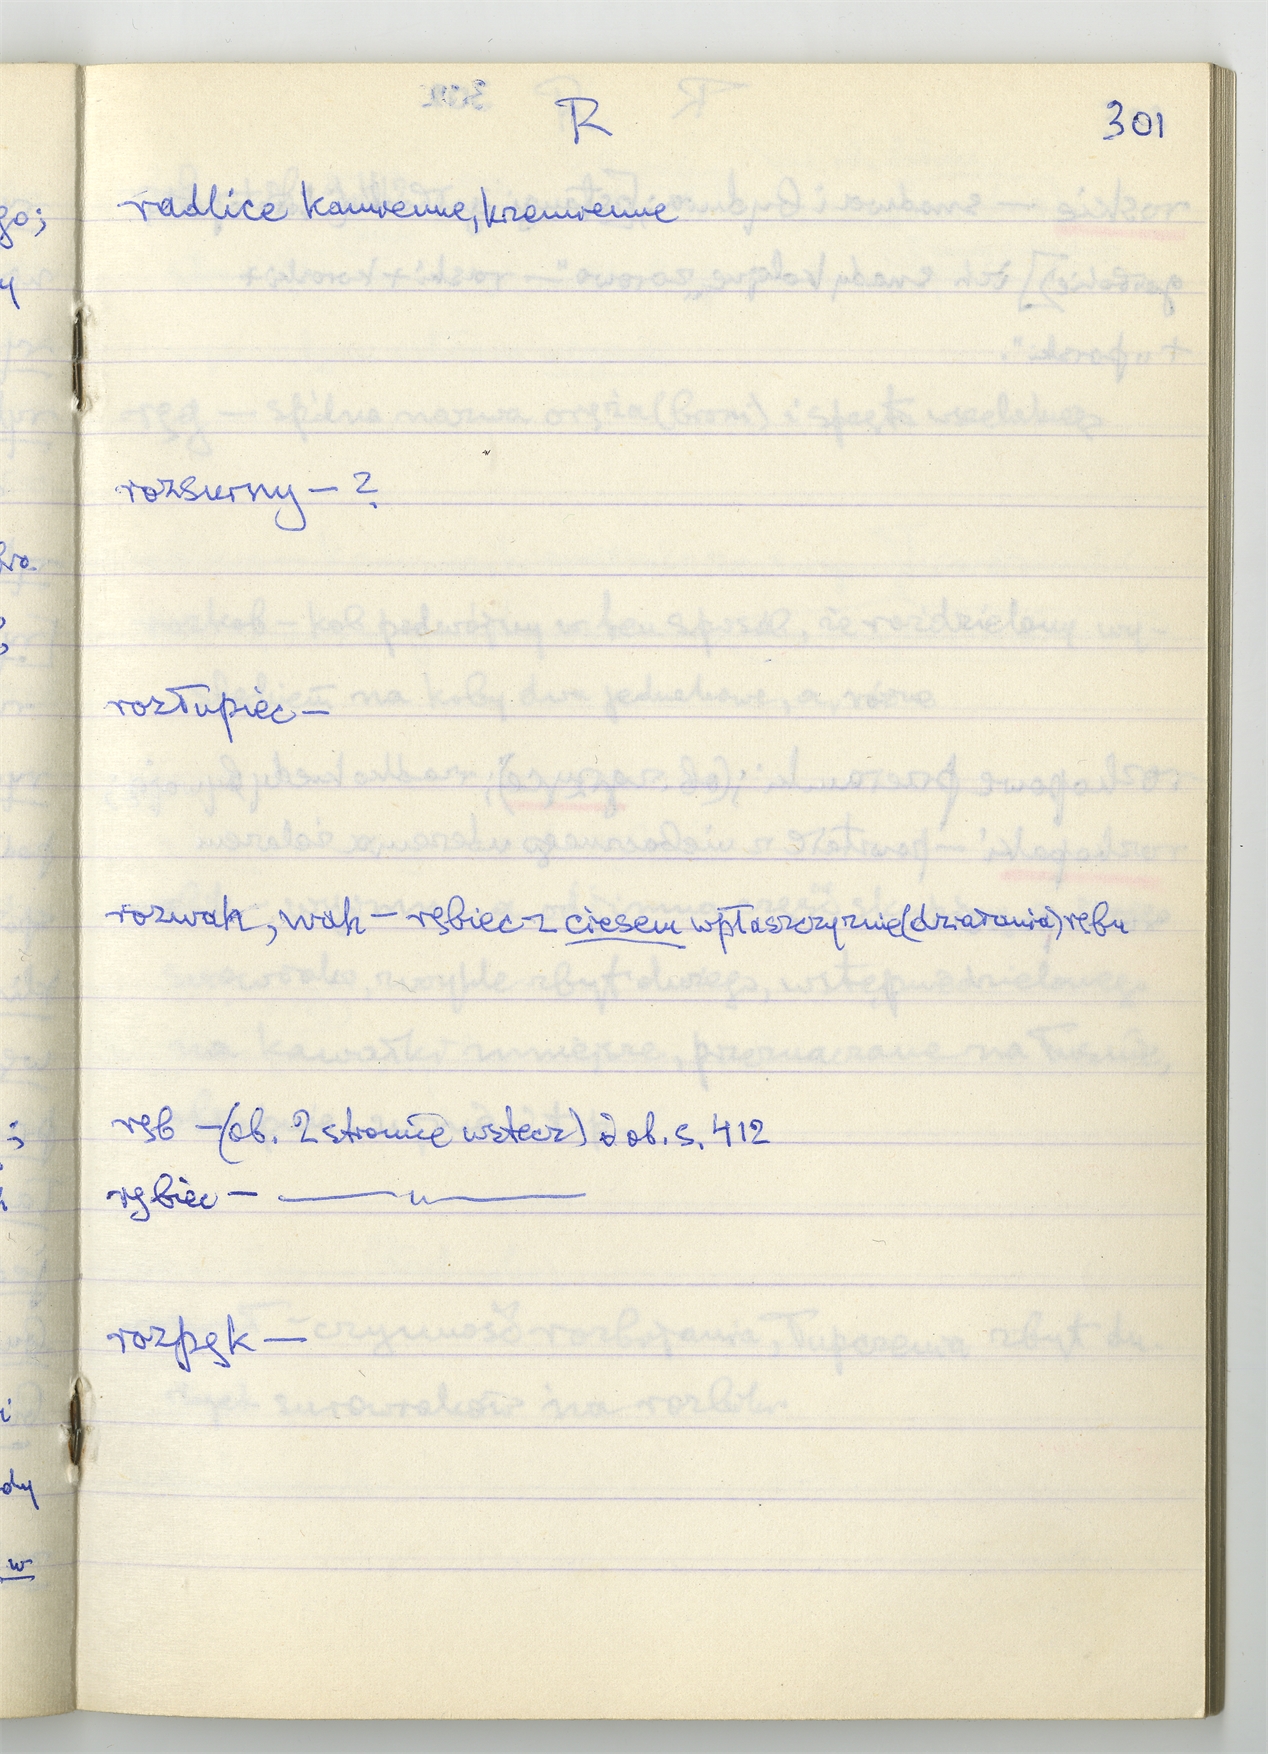 R
301
radlice kamienne, krzemienne
rozsurny – ?
rozłupiec –
rozwak, wak – rębiec z ciesem w płaszczyźnie (działania) rębu
ręb – (ob. 2 stronice wstecz) i ob. s. 412
rębiec – —— " ——
rozpęk —
go;
y
i
dy
w